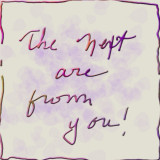 The next
are
from
you!